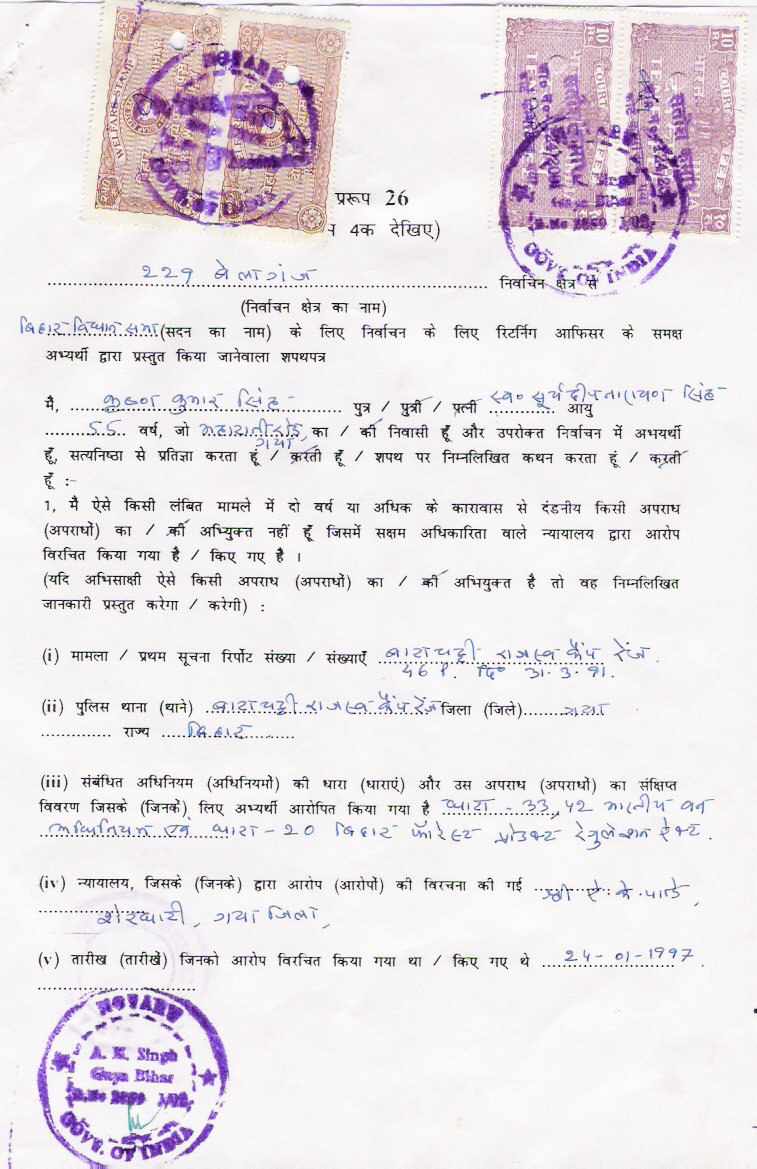 WELFARE STAMP
250
250
COURT FEE
COURT FEE
10
10
NOTARY
GOVT. OF INDIA
प्ररूप 26
4क देखिए)
229 बेलागंज निर्वाचन क्षेत्र से
(निर्वाचन क्षेत्र का नाम)
बिहार विधान सभा (सदन का नाम) के लिए निर्वाचन के लिए रिटर्निग आफिसर के समक्ष
अभ्यर्थी द्वारा प्रस्तुत किया जानेवाला शपथपत्र
मै, कृष्ण कुमार सिंह पुत्र / पुत्री / पत्नी स्व० सूर्यदीप नारायण सिंह आयु
55 वर्ष, जो महारानी रोड, गया का / की निवासी हूँ और उपरोक्त निर्वाचन में अभयर्थी
हूँ, सत्यनिष्ठा से प्रतिज्ञा करता हूं / करती हूँ / शपथ पर निम्नलिखित कथन करता हूं / करती
हूँ :-
1, मै ऐसे किसी लंबित मामले में दो वर्ष या अधिक के कारावास से दंडनीय किसी अपराध
(अपराधों) का / की अभ्युक्त नहीं हूँ जिसमें सक्षम अधिकारिता वाले न्यायालय द्वारा आरोप
विरचित किया गया है / किए गए है ।
(यदि अभिसाक्षी ऐसे किसी अपराध (अपराधों) का / की अभियुक्त है तो वह निम्नलिखित
जानकारी प्रस्तुत करेगा / करेगी) :
(i) मामला / प्रथम सूचना रिर्पोट संख्या / संख्याएँ बाराचट्टी राजस्व कैंप रेंज.
46 P. दि० 31.3.91.
(ii) पुलिस थाना (थाने) बाराचट्टी राजस्व कैंप रेंज जिला (जिले) गया
राज्य बिहार
(iii) संबंधित अधिनियम (अधिनियमों) की धारा (धाराएं) और उस अपराध (अपराधों) का संक्षिप्त
विवरण जिसके (जिनके) लिए अभ्यर्थी आरोपित किया गया है धारा - 33,42 भारतीय वन
अधिनियम एवं धारा - 20 बिहार फॉरेस्ट प्रोडक्ट रेगुलेशन ऐक्ट.
(iv) न्यायालय, जिसके (जिनके) द्वारा आरोप (आरोपों) की विरचना की गई श्री ऐ. के. पाण्डे,
शेरघाटी, गया जिला,
(v) तारीख (तारीखें) जिनको आरोप विरचित किया गया था / किए गए थे 24-01-1997.
NOTARY
A. K. Singh
Gaya Bihar
GOVT. OF INDIA